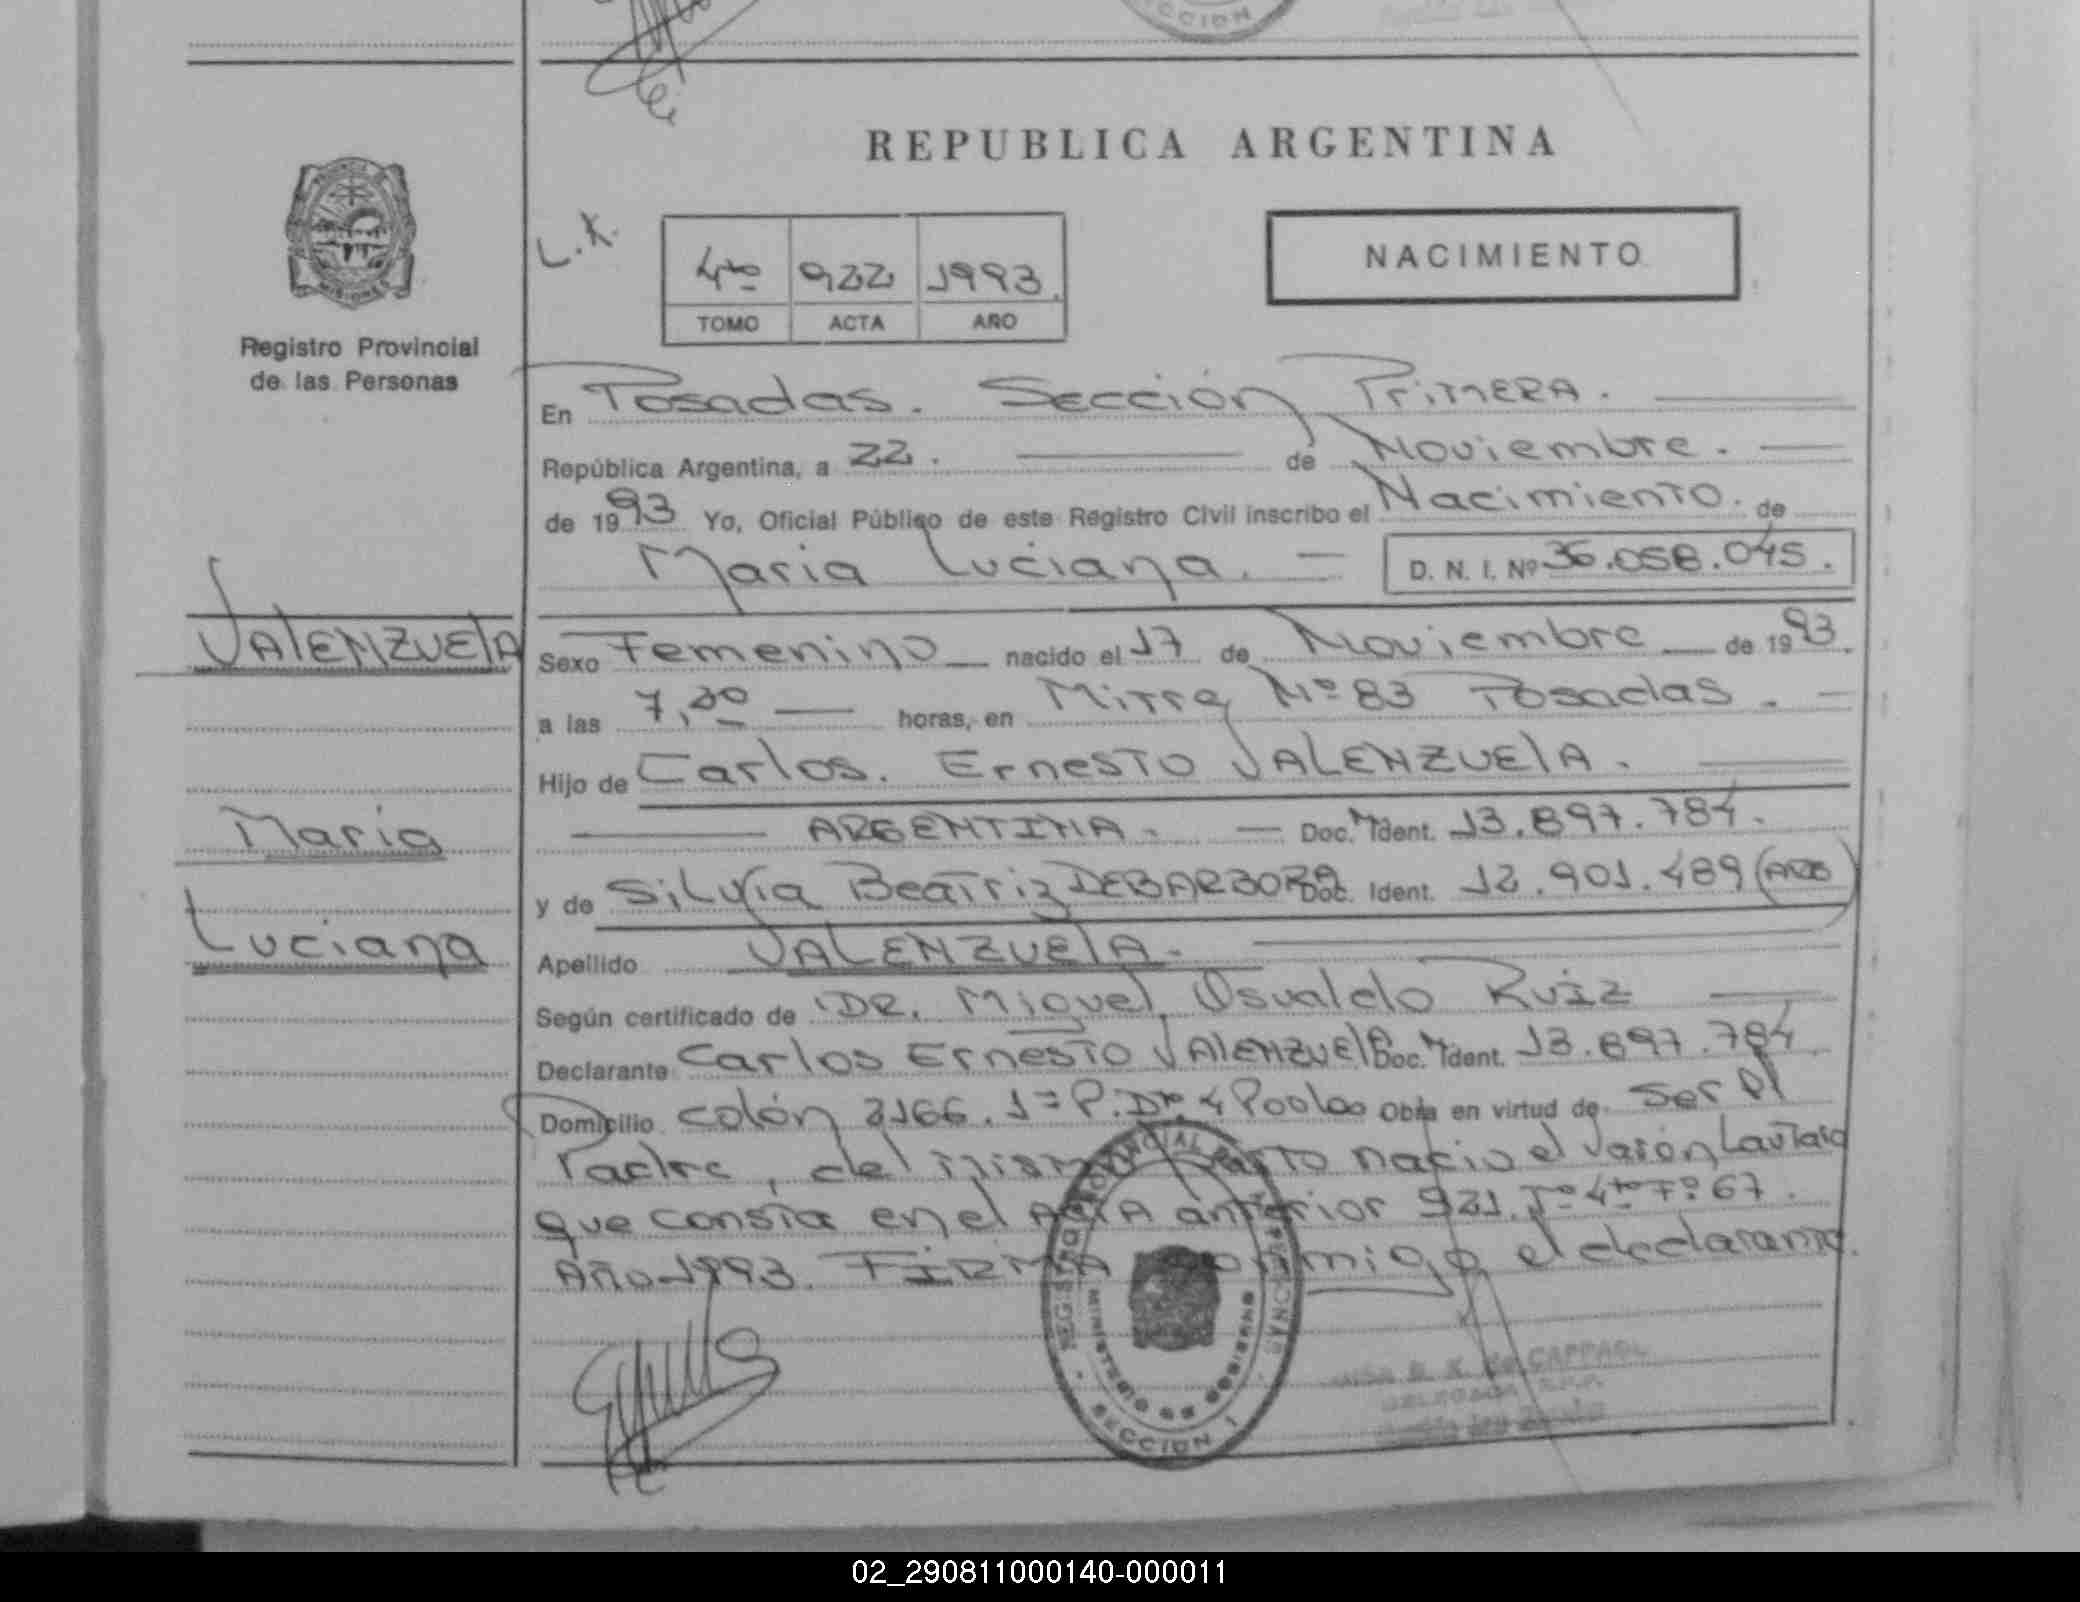 CCION
REPUBLICA ARGENTINA
L.K.
4to 922 1993.
TOMO ACTA AÑO
NACIMIENTO
MISIONES
Registro Provincial
de las Personas
En Posadas. Sección Primera.
República Argentina, a 22. de Noviembre.
de 1993 Yo, Oficial Público de este Registro Civil inscribo el Nacimiento. de
Maria Luciana. D. N. I. Nº 36.058.045.
VALENZUELA
Sexo Femenino nacido el 17 de Noviembre de 1993.
a las 7,30 horas, en Mitre Nº 83 Posadas.
Hijo de Carlos. Ernesto VALENZUELA.
Maria
ARGENTINA. Doc. Ident. 13.897.784.
y de Silvia Beatriz DEBARBORA Doc. Ident. 12.901.489
Luciana
Apellido VALENZUELA.
Según certificado de DR. Miguel Osvaldo Ruiz
Declarante Carlos Ernesto VALENZUELA Doc. Ident. 13.897.784
Domicilio Colón 2166. 1º P. Obra en virtud de ser el
Padre, del mismo parto nacio el varón Lautaro
que consta en el ACTA anterior 921. Tº 4to Fº 67.
Año 1993. FIRMA conmigo el declarante.
REGISTRO PROVINCIAL PERSONAS
MINISTERIO DE GOBIERNO
SECCION 1
02_290811000140-000011